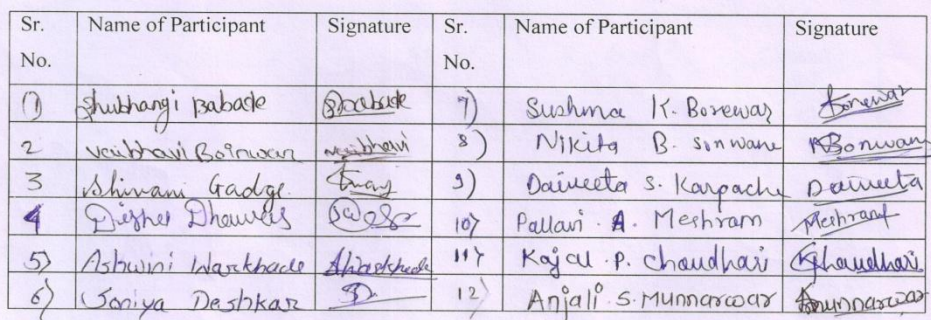 Sr. No. Name of Participant Signature Sr. No. Name of Participant Signature
1) Shubhangi Babade SBabade 7) Sushma K. Borewar Borewar
2 Vaibhavi Boinwar Vaibhavi 8) Nikita B. Sonwane
3 Shivani Gadge 9) Daiveeta S. Karpache Daiveeta
4 10) Pallavi A. Meshram Meshram
5) Ashwini Warkhade 11) Kajal P. Chaudhari KChaudhari
6) Soniya Deshkar 12) Anjali S. Munnarwar Amunnarwar